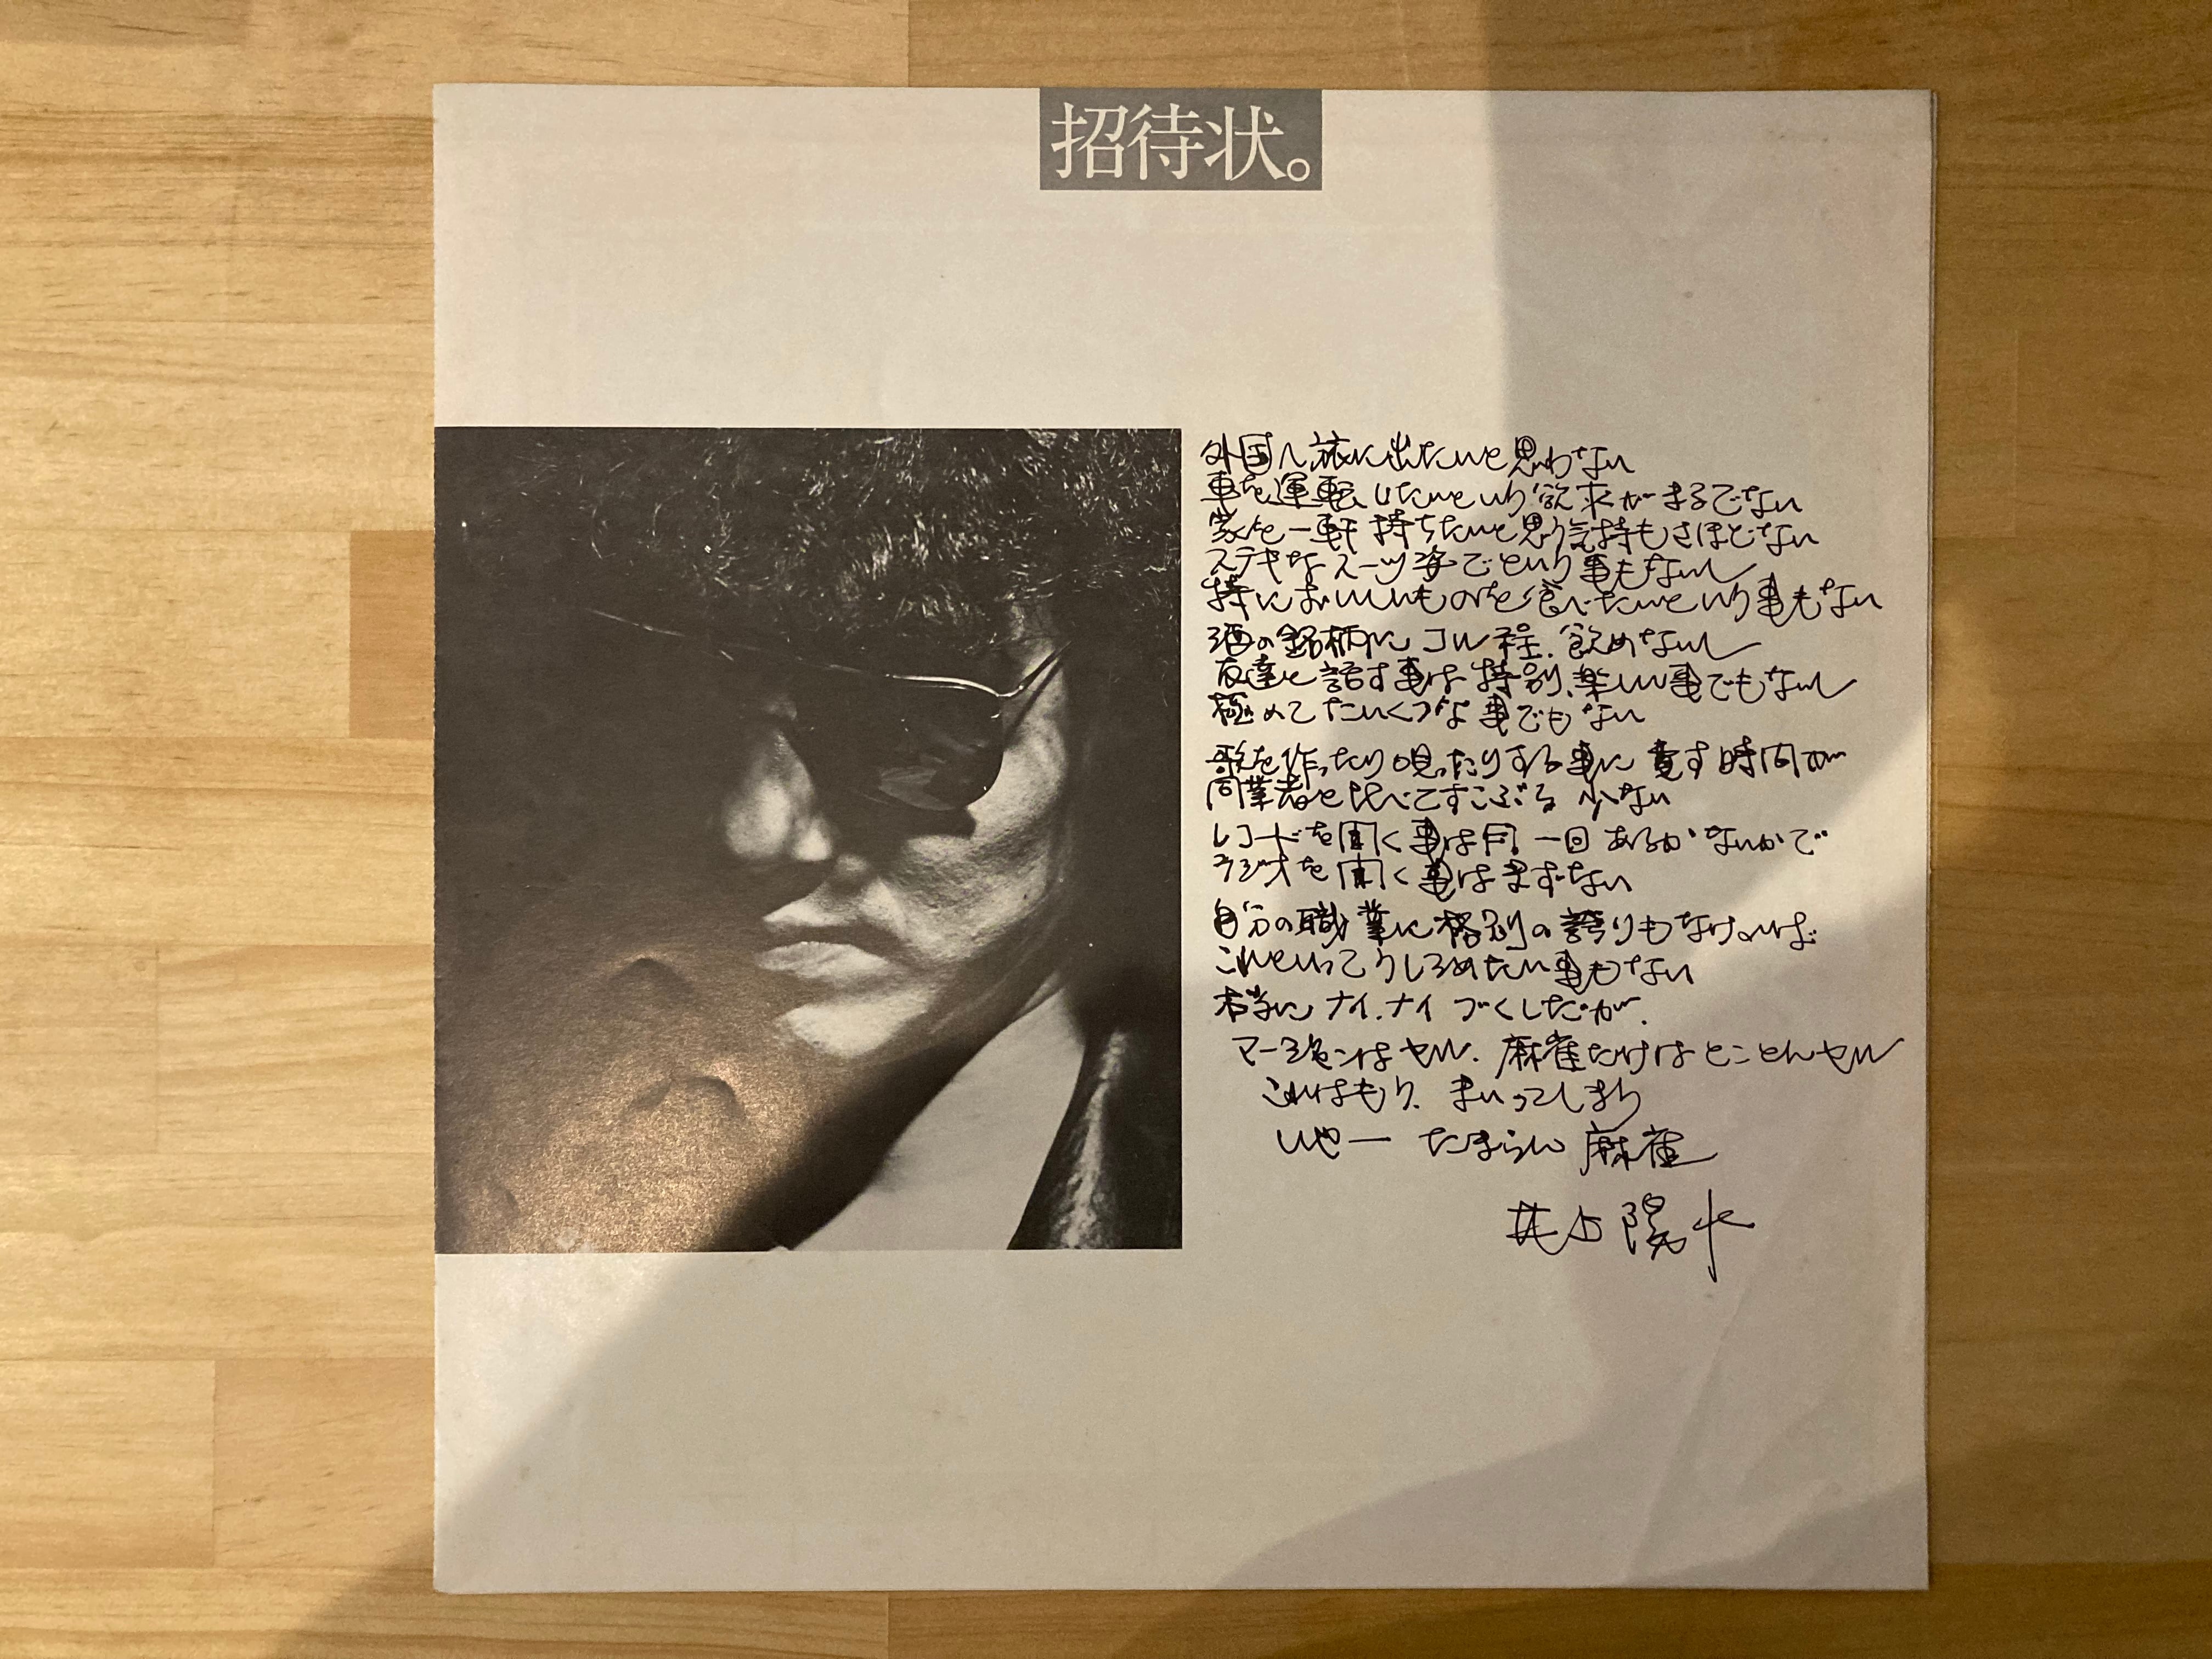 招待状。
外国へ旅に出たいと思わない
車を運転したいという欲求がまるでない
家を一軒持ちたいと思う気持もさほどない
ステキなスーツ姿でという事もないし
特においしいものを食べたいという事もない
酒の銘柄にコル程、飲めないし
友達と話す事は特別、楽しい事でもないし
極めてたいくつな事でもない
歌を作ったり唄ったりする事に費す時間が
同業者と比べてすこぶる少ない
レコードを聞く事は月一回あるかないかで
ラジオを聞く事はまずない
自分の職業に格別の誇りもなければ
これといってうしろめたい事もない
本当にナイ、ナイづくしだが、
マージャンはヤル、麻雀だけはとことんヤル
これはもう、まいってしまう
いやー たまらん 麻雀
井上陽水